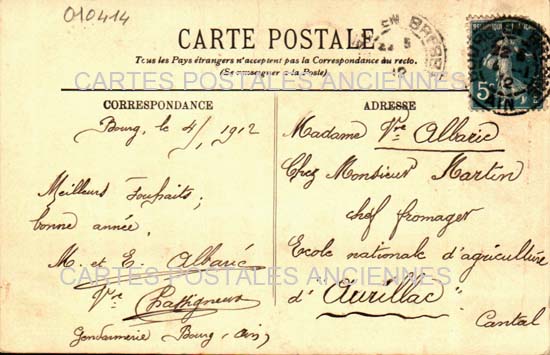 010414
CARTE POSTALE
Tous les Pays étrangers n'acceptent pas la Correspondance au recto.
(Se renseigner à la Poste)
CARTES POSTALES ANCIENNES
CORRESPONDANCE
Bourg, le 4/1 1912
Meilleurs Souhaits;
bonne année.
M. et E. Albaric
Vve Chassigneux
Gendarmerie Bourg (Ain)
ADRESSE
Madame Vve Albaric
Chez Monsieur Martin
chef fromager
Ecole nationale d'agriculture
d' "Aurillac"
Cantal
CARTES POSTALES ANCIENNES
5c